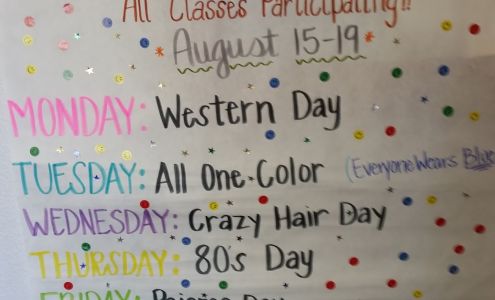 All Classes Participating!!
August 15-19
MONDAY: Western Day
TUESDAY: All One-Color (Everyone Wears Blue
WEDNESDAY: Crazy Hair Day
THURSDAY: 80's Day
FRIDAY: Day